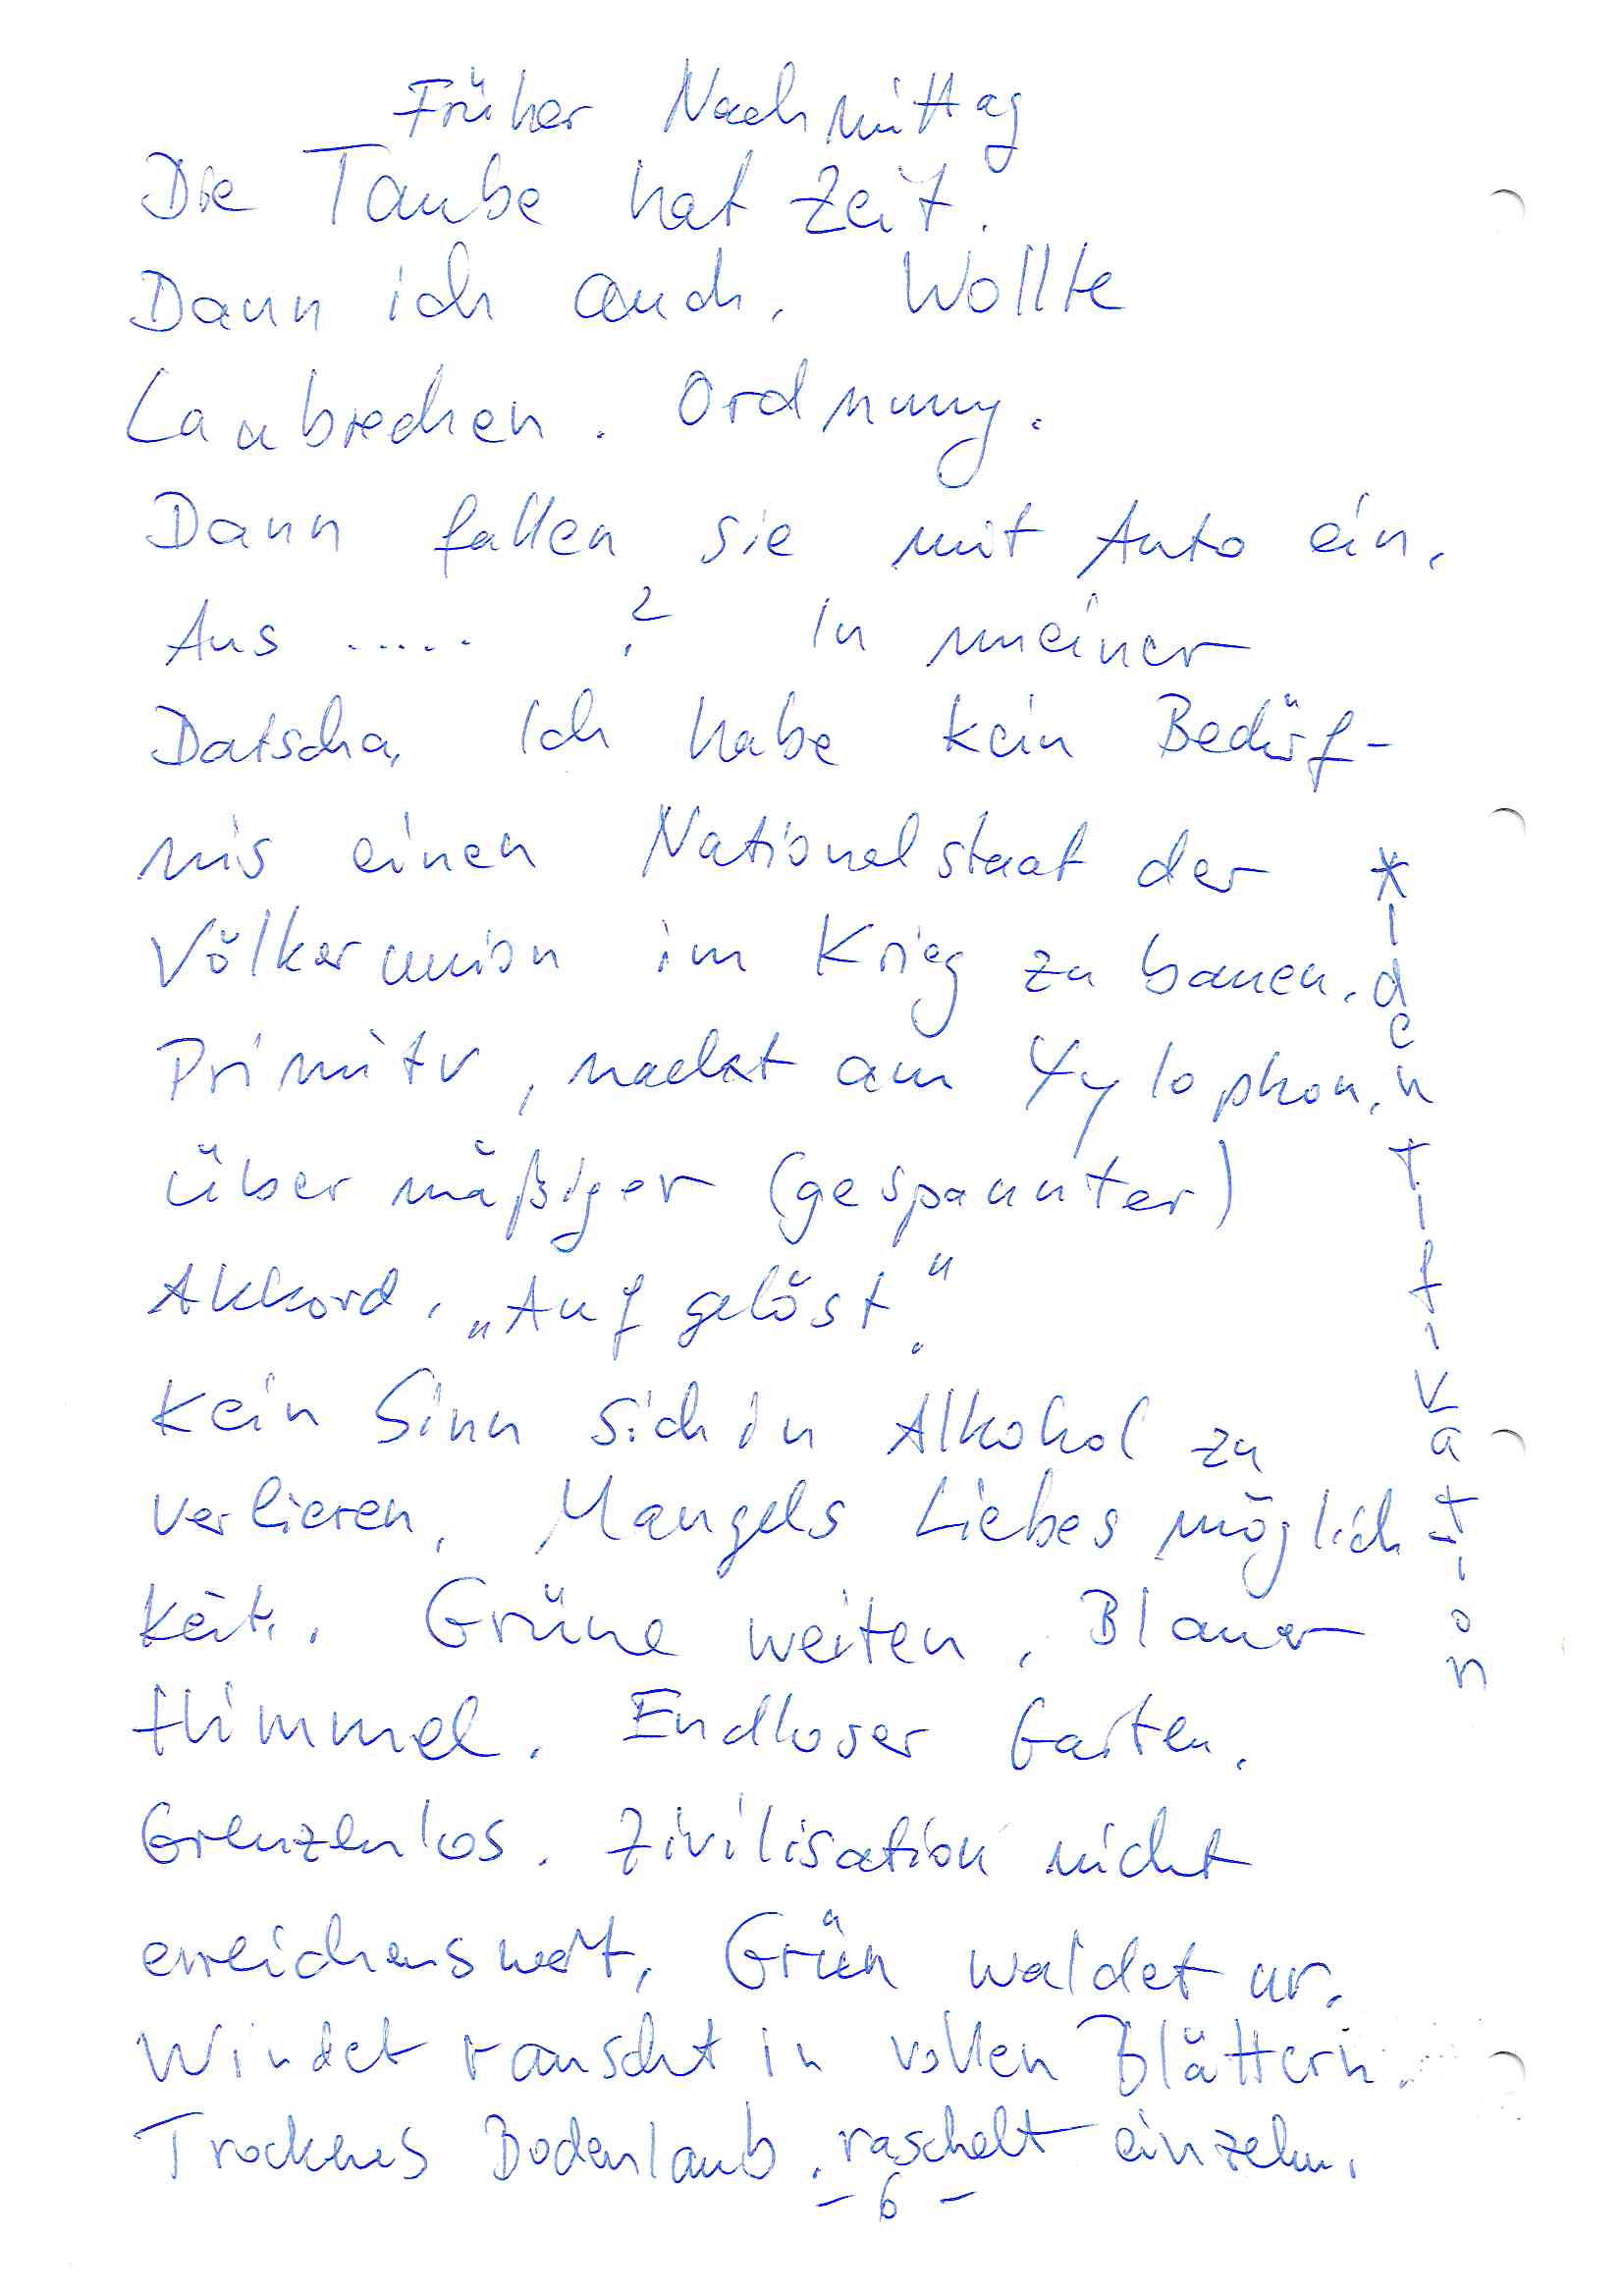 Früher Nachmittag
Die Taube hat Zeit.
Dann ich auch. Wollte
Laubrechen. Ordnung.
Dann fallen sie mit Auto ein.
Aus ..... ? In meiner
Datscha. Ich habe kein Bedürf-
nis einen Nationalstaat der
Völkerunion im Krieg zu bauen.
Primitv, nackt am Xylophon.
übermäßiger (gespannter)
Akkord. „Aufgelöst."
Kein Sinn sich in Alkohol zu
verlieren. Mangels Liebesmöglich-
keit. Grüne weiten. Blauer
Himmel. Endloser Garten.
Grenzenlos. Zivilisation nicht
erreichenswert. Grün waldet ur.
Windet rauscht in vollen Blättern.
Trocknes Bodenlaub. raschelt einzeln.
- 6 -
* Identifi
ation